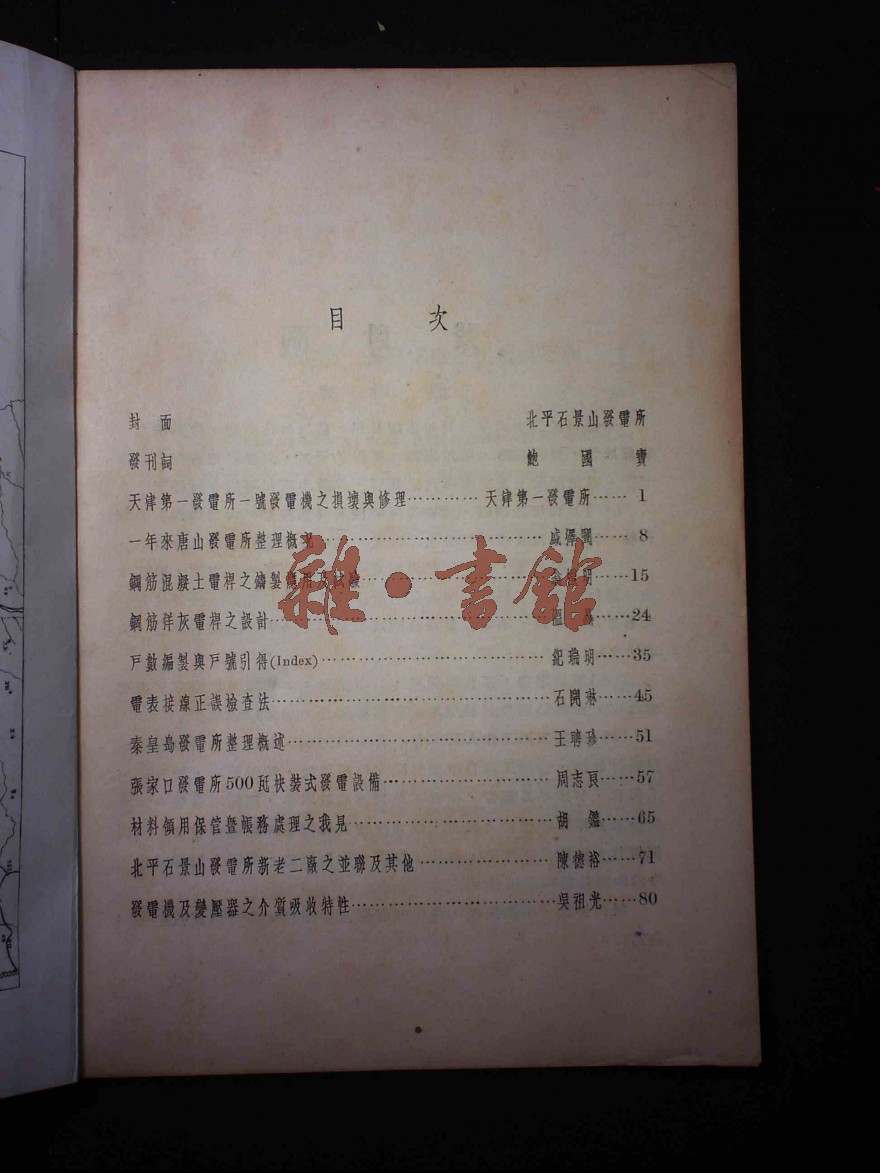 目 次
封 面 北平石景山發電所
發刊詞 鮑 國 寶
天津第一發電所一號發電機之損壞與修理············天津第一發電所······1
一年來唐山發電所整理概況······8
鋼筋混凝土電桿之鑄製應用及試驗······15
鋼筋洋灰電桿之設計······24
戶數編製與戶號引得(Index)······紀瑞明······35
電表接線正誤檢查法······石開琳······45
秦皇島發電所整理概述······王聘珍······51
張家口發電所500瓩快裝式發電設備······周志良······57
材料領用保管暨帳務處理之我見······胡 鑑······65
北平石景山發電所新老二廠之並聯及其他······陳德裕······71
發電機及變壓器之介質吸收特性······吳祖光······80
雜·書館